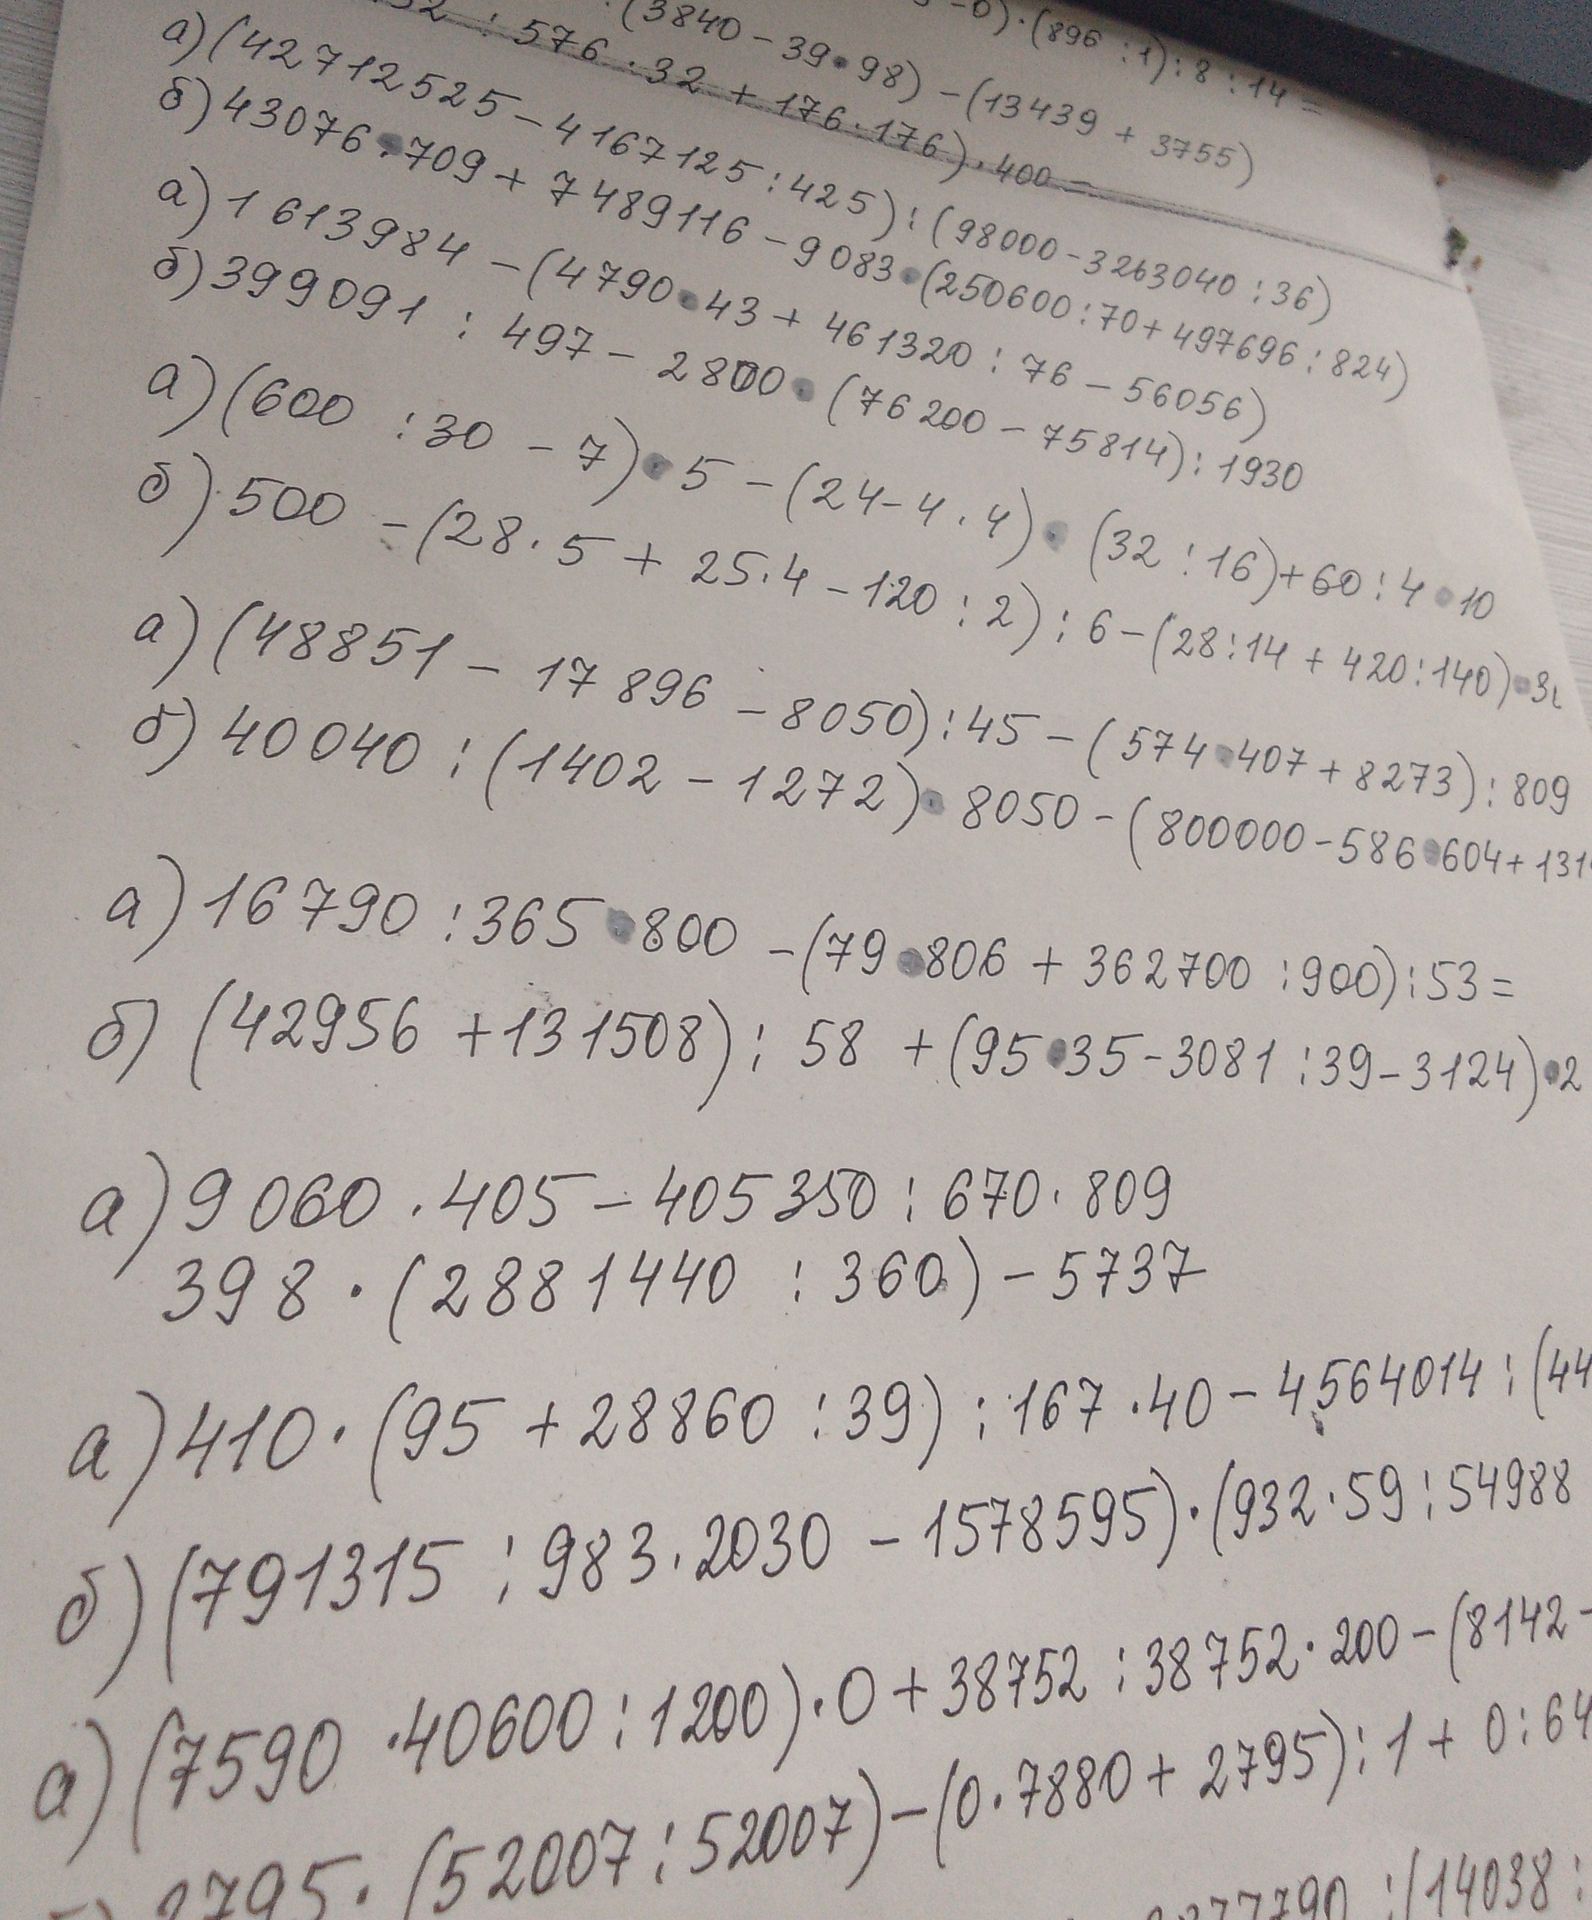 -0)·(896:1):8:14=
·(3840-39·98)-(13439+3755)
:576·32+176·176)·400=
а)(42712525-4167125:425):(98000-3263040:36)
б)43076·709+7489116-9083·(250600:70+497696:824)
а)1613984-(4790·43+461320:76-56056)
б)399091:497-2800·(76200-75814):1930
а)(600:30-7)·5-(24-4·4)·(32:16)+60:4·10
б)500-(28·5+25·4-120:2):6-(28:14+420:140)·3
а)(48851-17896-8050):45-(574·407+8273):809
б)40040:(1402-1272)·8050-(800000-586·604+131
а)16790:365·800-(79·806+362700:900):53=
б)(42956+131508):58+(95·35-3081:39-3124)·2
а)9060·405-405350:670·809
398·(2881440:360)-5737
а)410·(95+28860:39):167·40-4564014:(44
б)(791315:983·2030-1578595)·(932·59:54988
а)(7590·40600:1200)·0+38752:38752·200-(8142-
2795·(52007:52007)-(0·7880+2795):1+0:64
77790:(14038: